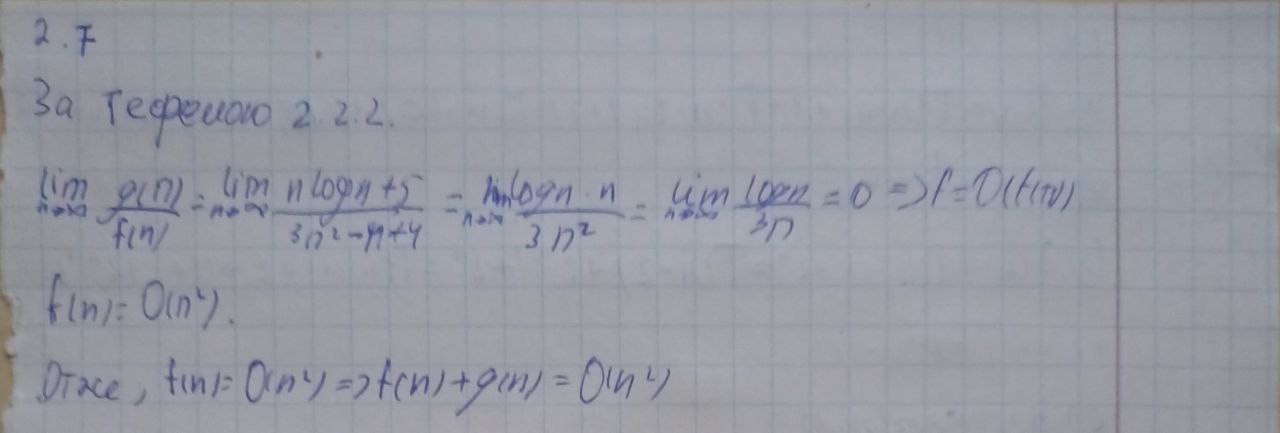 2.7
За теоремою 2.2.2.
lim n→∞ g(n)/f(n) = lim n→∞ (n log n + 5)/(3n² - n + 4) = lim n→∞ (log n · n)/(3n²) = lim n→∞ log n/(3n) = 0 => f = O(f(n))
f(n) = O(n²).
Отже, f(n) = O(n²) => f(n) + g(n) = O(n²)